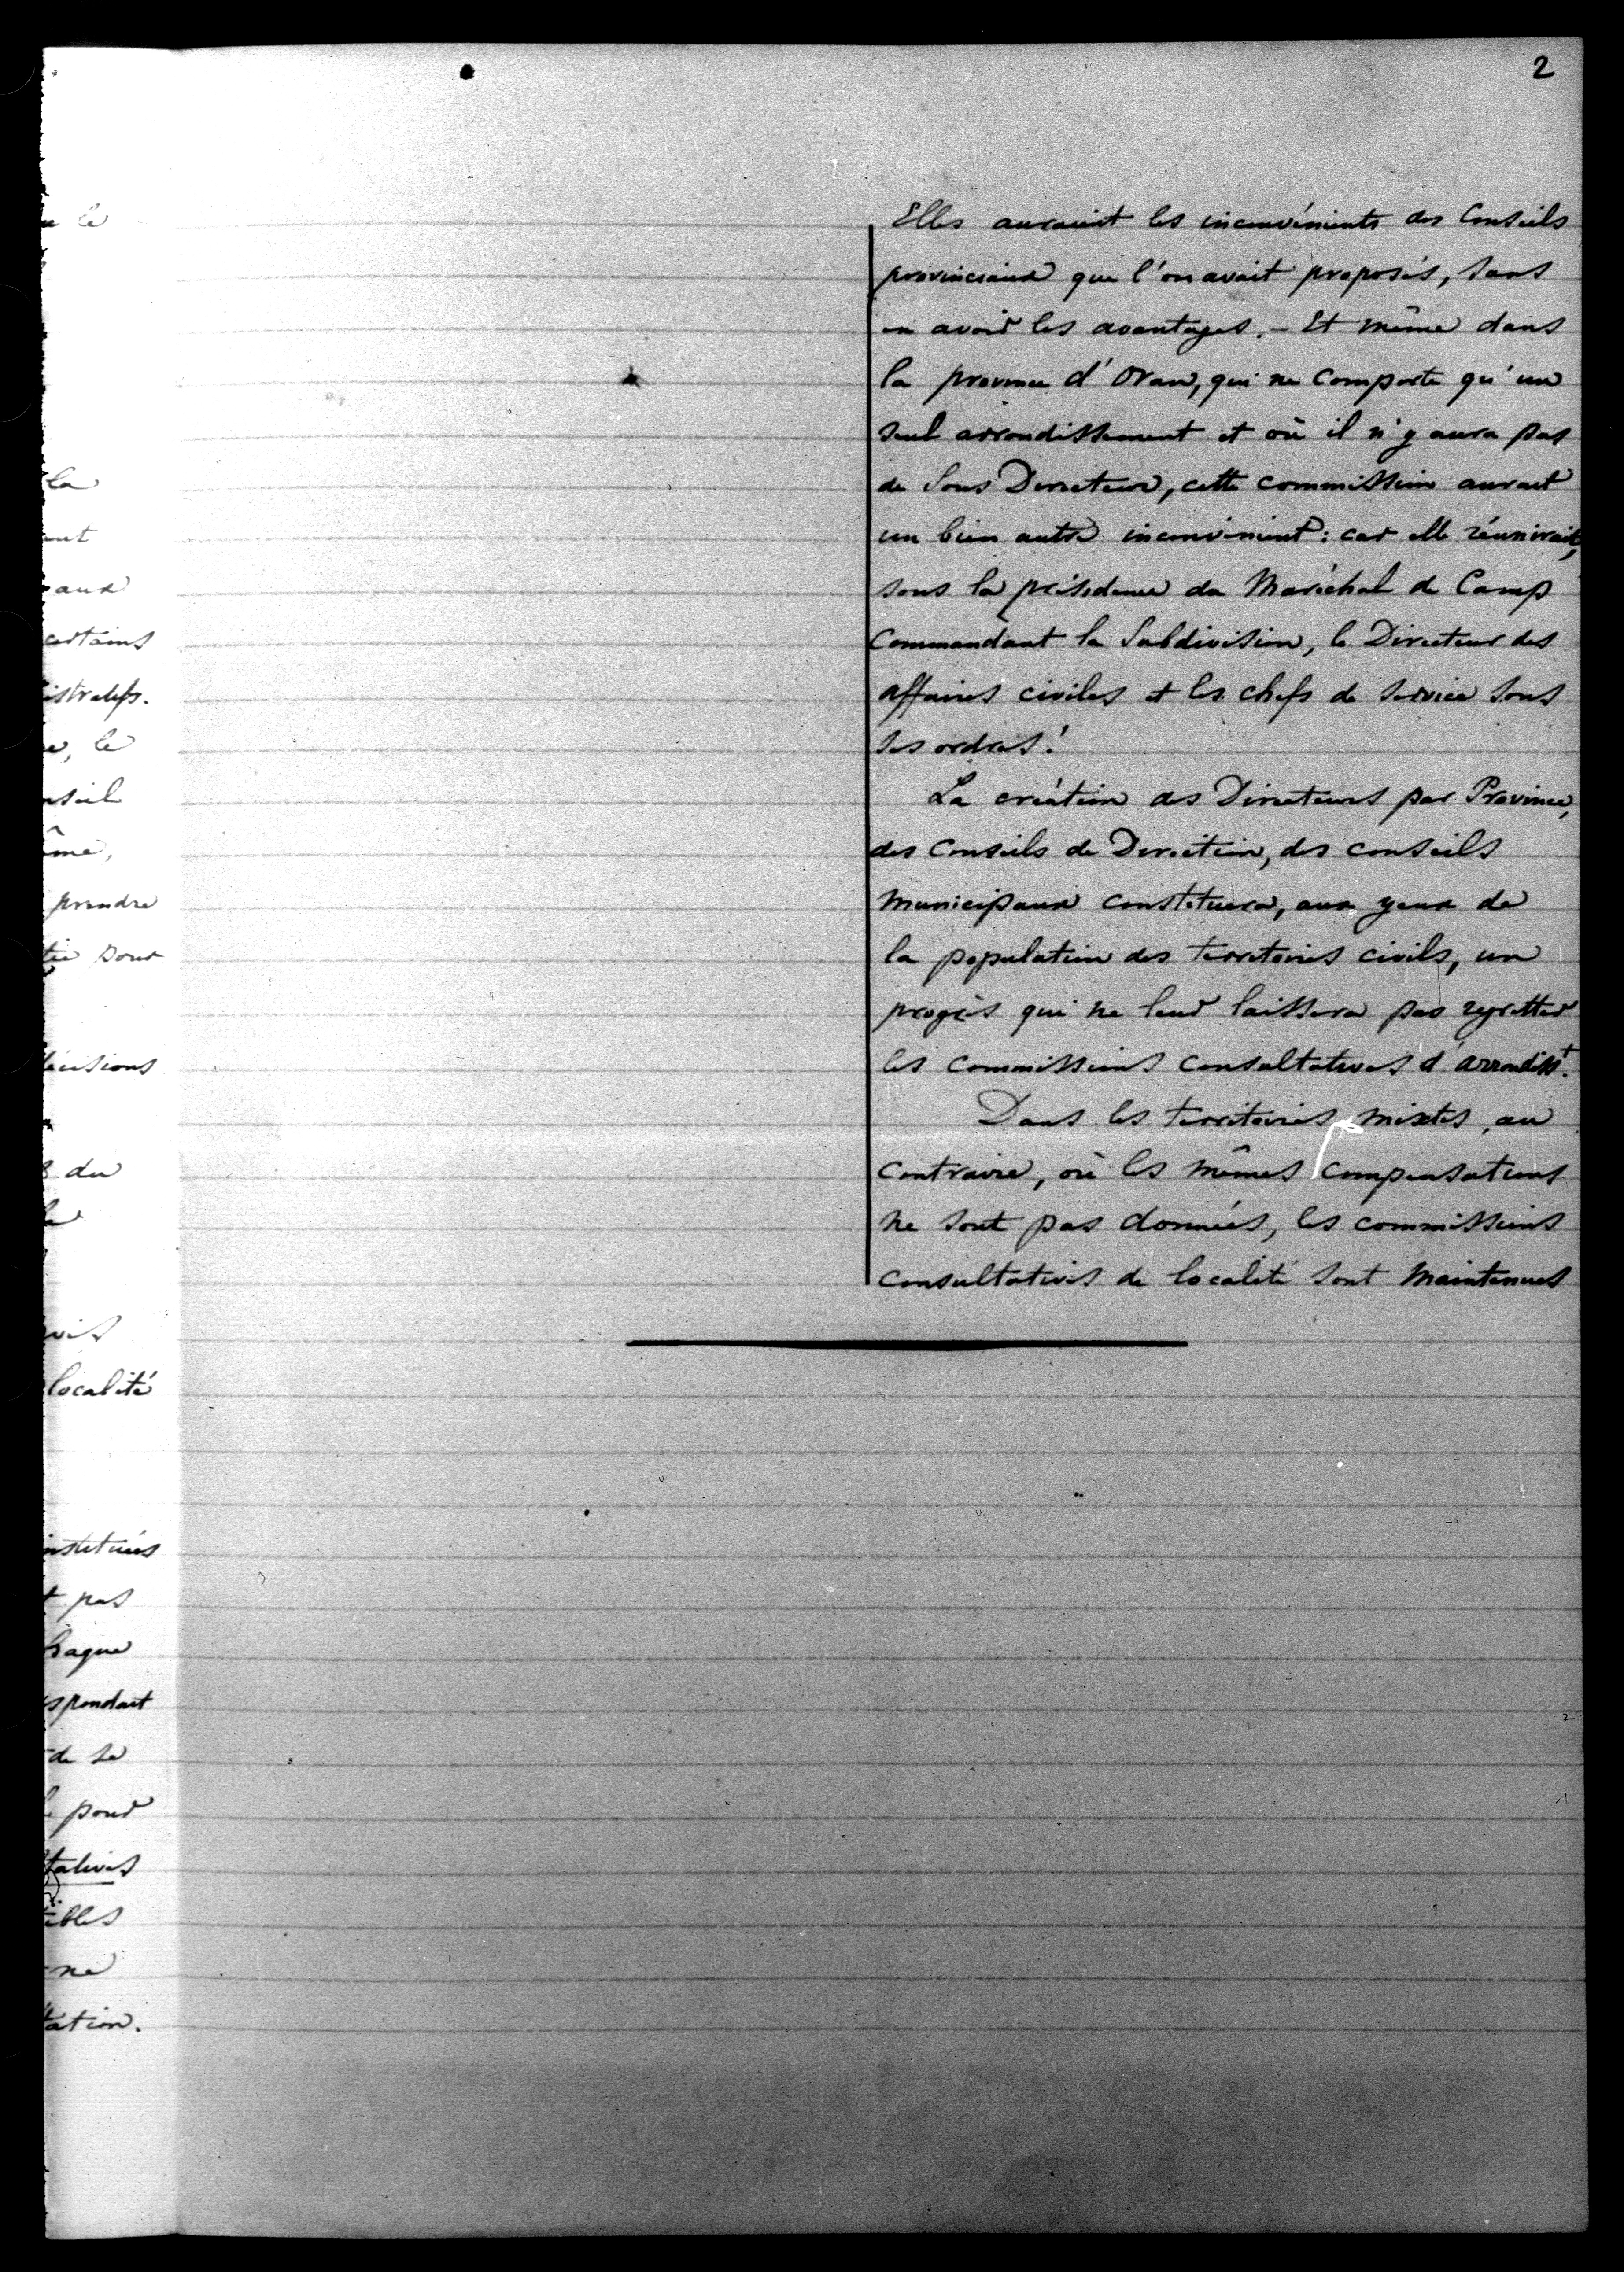 2
Elles auraient les inconvénients des Conseils
provinciaux que l'on avait proposés, sans
en avoir les avantages. - Et même dans
la province d'Oran, qui ne comporte qu'un
seul arrondissement et où il n'y aura pas
de Sous Directeur, cette commission aurait
un bien autre inconvénient : car elle réunirait,
sous la présidence du Maréchal de Camp
Commandant la Subdivision, le Directeur des
affaires civiles et les chefs de service sous
ses ordres !
La création des Directeurs par Province,
des Conseils de Direction, des conseils
municipaux constituera, aux yeux de
la population des territoires civils, un
progrès qui ne leur laissera pas regretter
les commissions consultatives d'arrondisst.
Dans les territoires mixtes, au
contraire, où les mêmes compensations
ne sont pas données, les commissions
consultatives de localité sont maintenues
le
la
aux
certains
le
prendre
pour
du
localité
pas
de sa
pour
ne